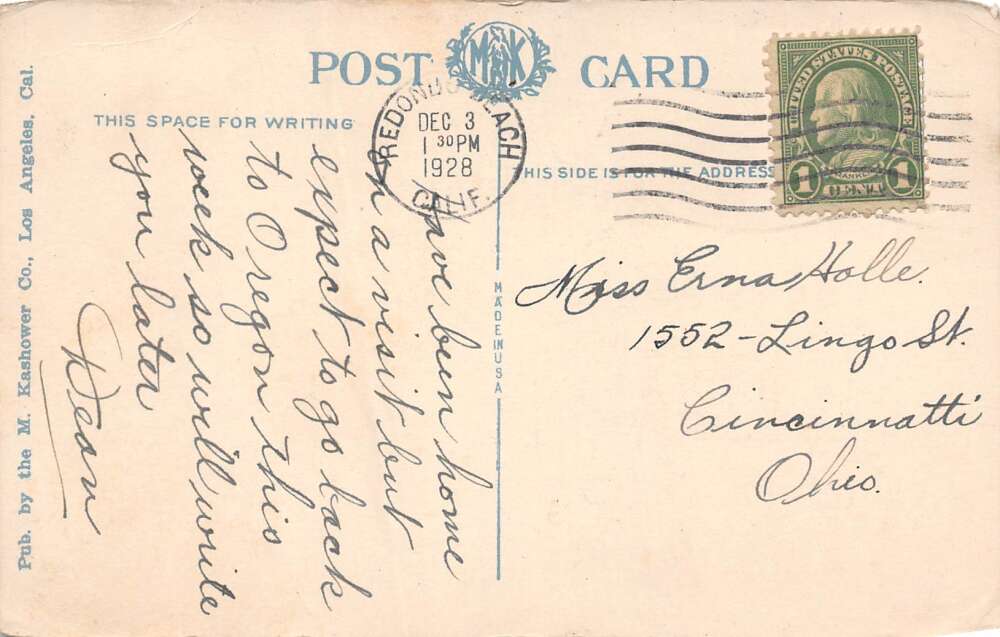 POST CARD
MKK
THIS SPACE FOR WRITING
THIS SIDE IS FOR THE ADDRESS
REDONDO BEACH
DEC 3
1 30 PM
1928
CALIF.
UNITED STATES POSTAGE
FRANKLIN
1 CENT 1
Have been home
on a visit but
expect to go back
to Oregon this
week so will write
you later
Dean
Miss Erna Holle.
1552-Lingo St.
Cincinnatti
Ohio.
MADE IN USA
Pub. by the M. Kashower Co., Los Angeles, Cal.